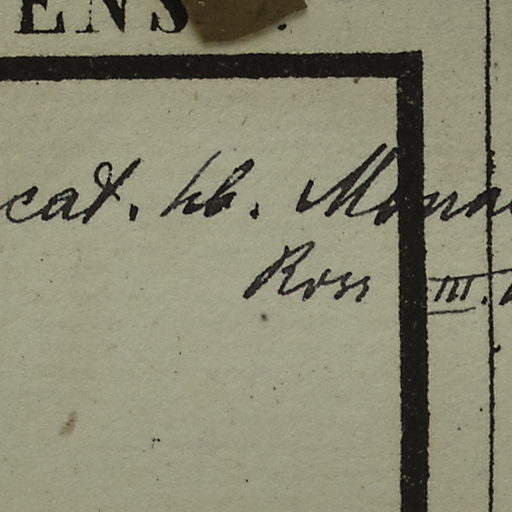 ENS
cat. hb. Mona
Ross III.